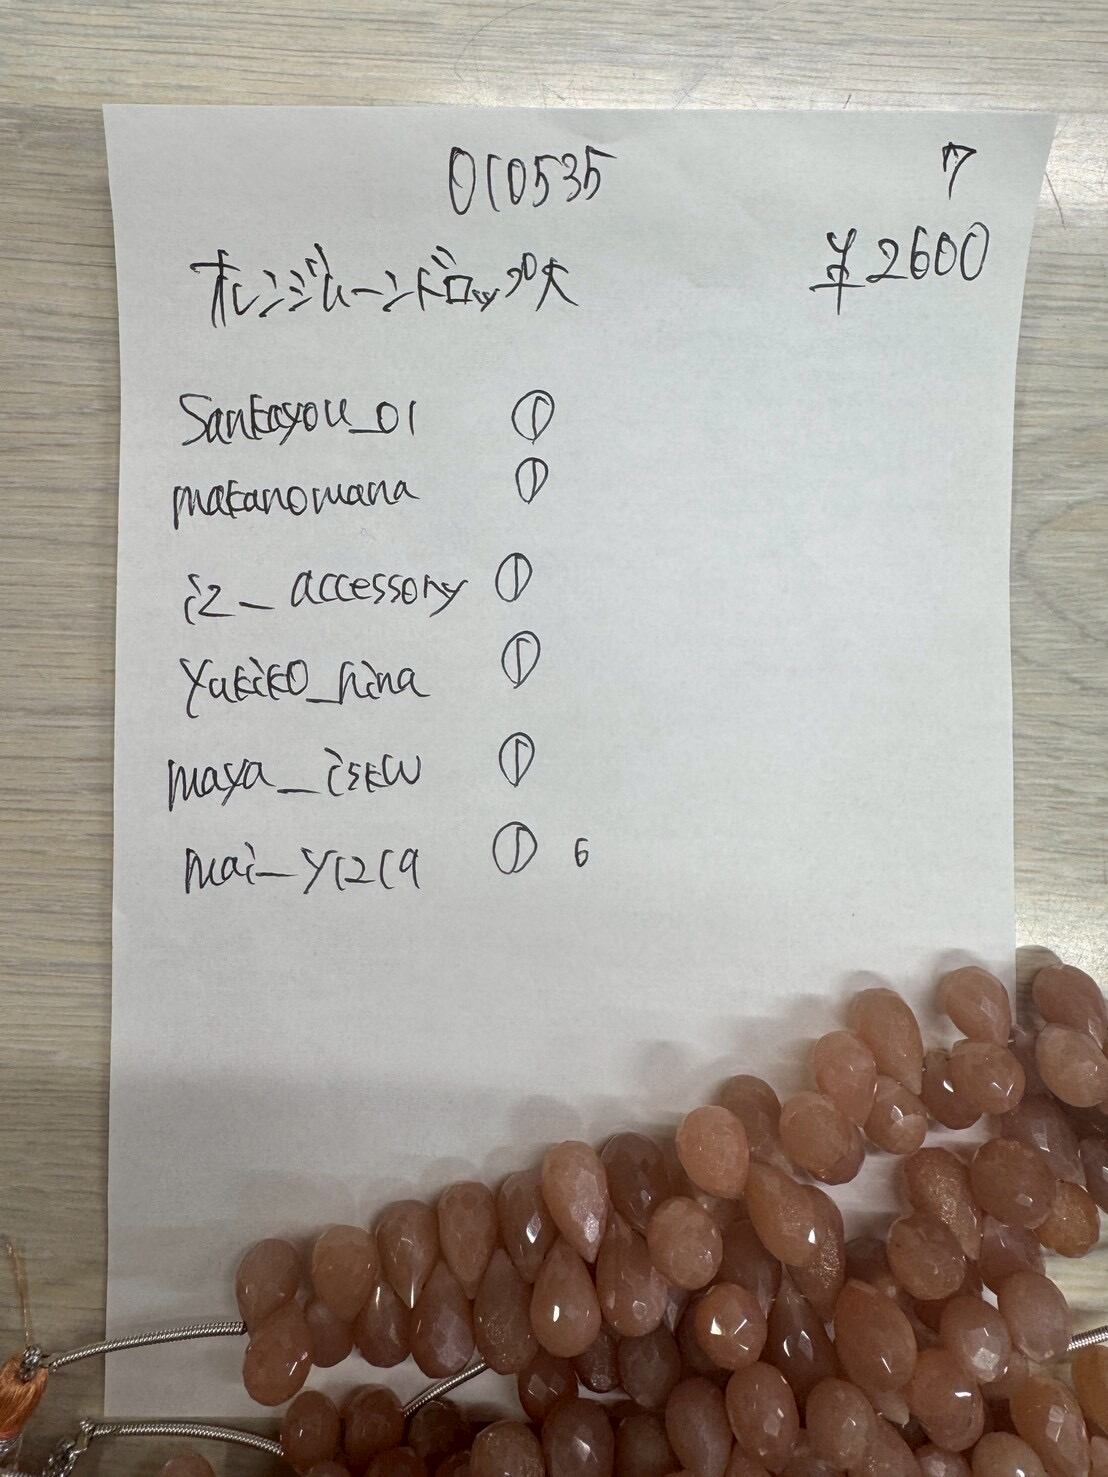 010535 7
オレンジムーンドロップ大 ¥2600
Sankayou_01 ①
makanomana ①
iz_accessory ①
Yukiko_hina ①
maya_iskw ①
mai_y1219 ① 6